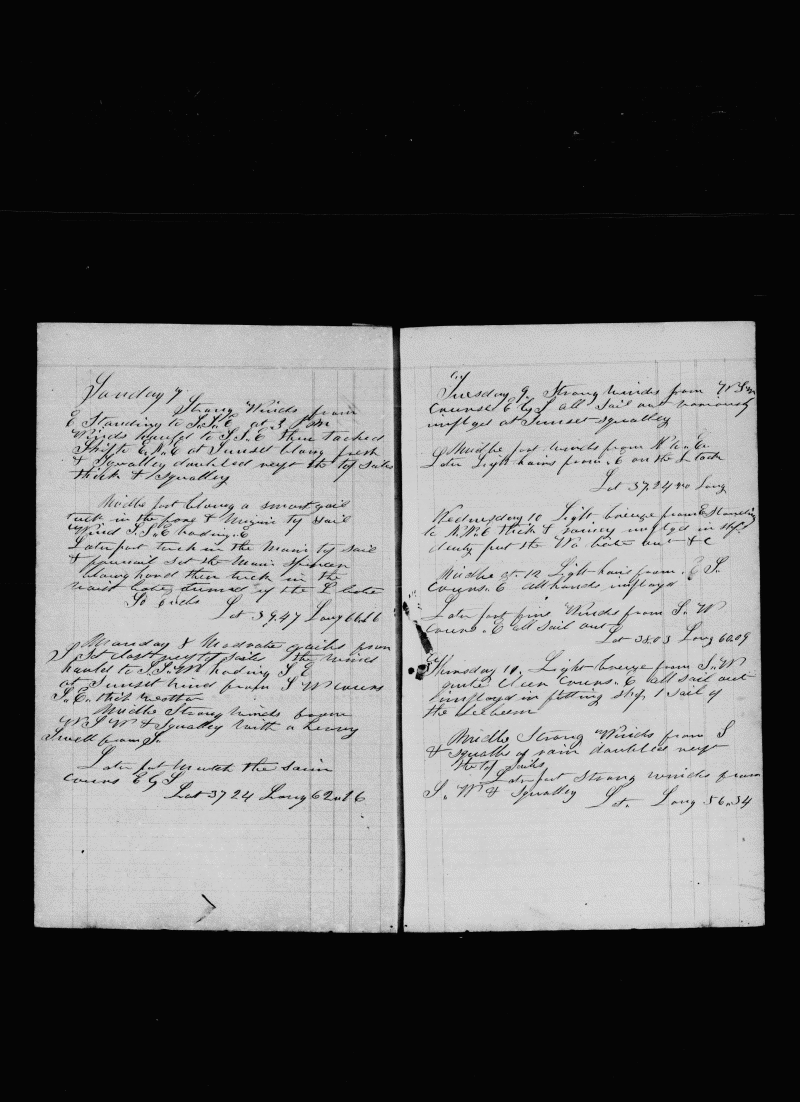 Sunday 7
Strong Winds from
E Standing to S.S.E at 3 P.M
Winds hauled to S.S.E then tacked
Ship to E.N.E at Sunset blowing fresh
& Squalley doubled reeft the top sails
thick & Squalley
Midle part blowing a smart gail
tuck in the fore & Mizin top sail
Wind S.S.E heading E
Later part tuck in the Main top sail
& foursail Set the Main Spencer
blowing hard then tuck in the
waist bote of the L bote
So Ends
Lat 39.47 Long 66.16
Monday 8 Modrate gails from
S Set clost reeft top sails the winds
hauled to S.S.W heading S E
at Sunset wind from S W cours
S.E. thick weather
Midle Strong winds from
W S W & Squalley with a heavy
Swell from S.
Later part mutch the saim
cours E by S
Lat 37 24 Long 62.16
Tuesday 9. Strong winds from W S W
Course E by S all Sail out variously
imployd at Sunset squalley
Midle part winds from N W. E
Later Light hairs from E on the L tack
Lat 37.24 no Long
Wednesday 10 Light breeze from E Standing
to N.N.E thick & rainey imployd in ship
deuty put the Wa bote out & C
Midle at 12 Light hairs from E S.
Cours. E all hands imployd
Later part fine Winds from S. W
Cours. E all Sail out
Lat 38.03 Long 60.09
Thursday 10, Light breeze from S.W
quite clear Cours. E all sail out
imployd in fitting ship 1 sail of
the
Midle Strong Winds from S
& Squalls of rain doubled reeft
the top sails
Later part Strong winds from
S. W & Squalley
Lat. Long 56.34